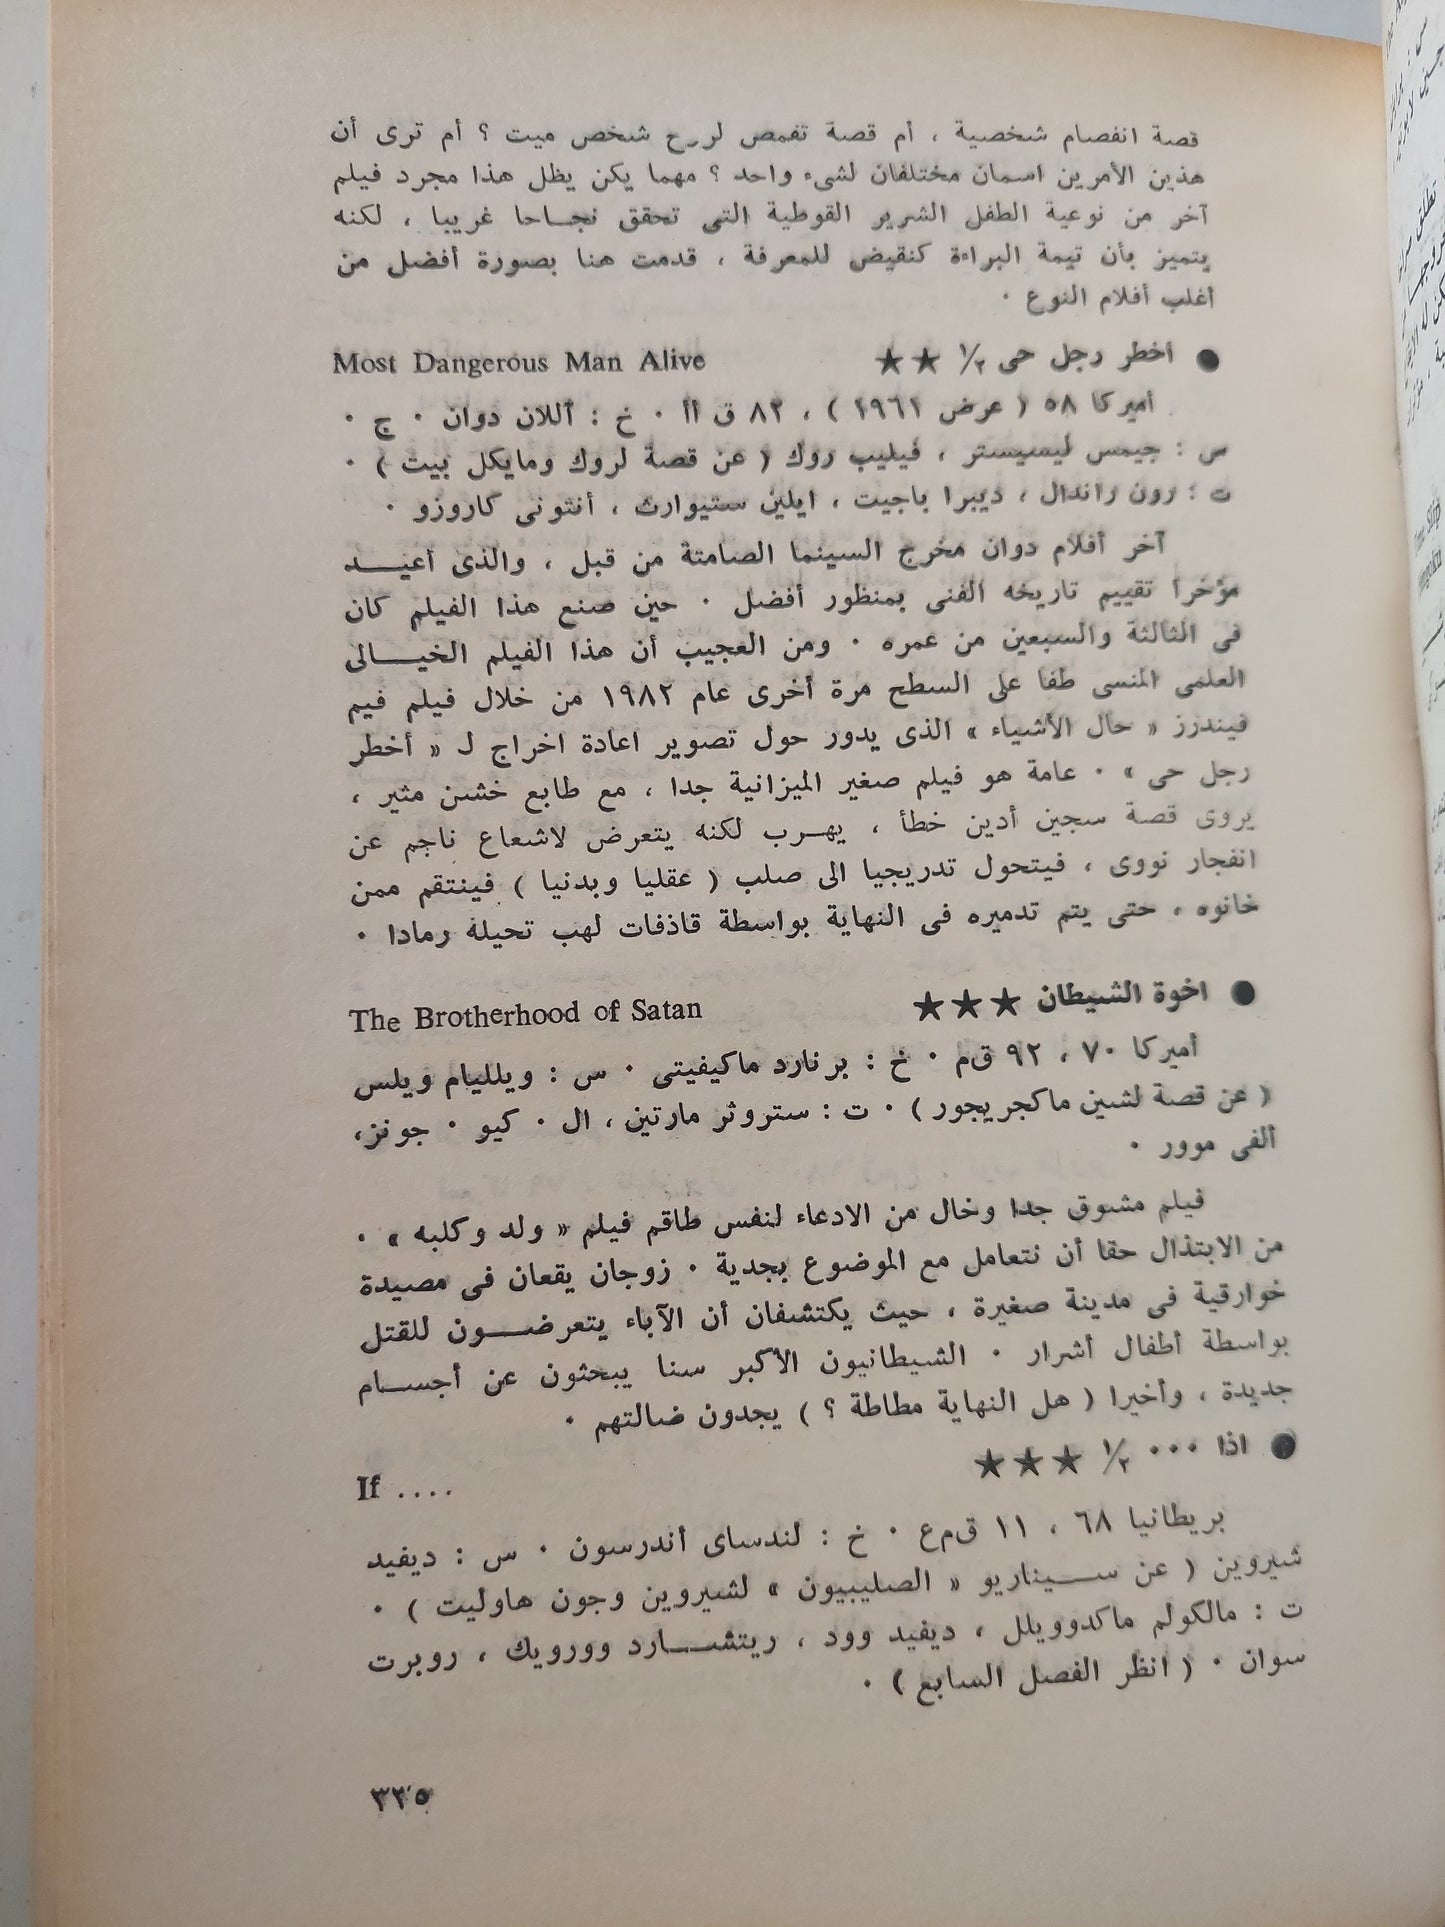 قصة انفصام شخصية ، أم قصة تقمص لروح شخص ميت ؟ أم ترى أن
هذين الأمرين اسمان مختلفان لشىء واحد ؟ مهما يكن يظل هذا مجرد فيلم
آخر من نوعية الطفل الشرير القوطية التى تحقق نجاحا غريبا ، لكنه
يتميز بأن تيمة البراءة كنقيض للمعرفة ، قدمت هنا بصورة أفضل من
أغلب أفلام النوع ٠
● أخطر رجل حى ١/٢ ★★ Most Dangerous Man Alive
أميركا ٥٨ ( عرض ١٩٦١ ) ، ٨٢ ق أأ ٠ خ : آللان دوان ٠ ج ٠
س : جيمس ليسيستر ، فيليب روك ( عن قصة لروك ومايكل بيت ) ٠
ت : رون راندال ، ديبرا باجيت ، ايلين ستيوارت ، أنتونى كاروزو ٠
آخر أفلام دوان مخرج السينما الصامتة من قبل ، والذى أعيد
مؤخرا تقييم تاريخه الفنى بمنظور أفضل ٠ حين صنع هذا الفيلم كان
فى الثالثة والسبعين من عمره ٠ ومن العجيب أن هذا الفيلم الخيالى
العلمى المنسى طفا على السطح مرة أخرى عام ١٩٨٢ من خلال فيلم فيم
فيندرز « حال الأشياء » الذى يدور حول تصوير اعادة اخراج لـ « أخطر
رجل حى » ٠ عامة هو فيلم صغير الميزانية جدا ، مع طابع خشن مثير ،
يروى قصة سجين أدين خطأ ، يهرب لكنه يتعرض لاشعاع ناجم عن
انفجار نووى ، فيتحول تدريجيا الى صلب ( عقليا وبدنيا ) فينتقم ممن
خانوه ، حتى يتم تدميره فى النهاية بواسطة قاذفات لهب تحيله رمادا ٠
● اخوة الشيطان ★★★ The Brotherhood of Satan
أميركا ٧٠ ، ٩٢ ق‌م ٠ خ : برنارد ماكيفيتى ٠ س : ويلليام ويلس
( عن قصة لشين ماكجريجور ) ٠ ت : ستروثر مارتين ، ال ٠ كيو ٠ جونز،
ألفى موور ٠
فيلم مشوق جدا وخال من الادعاء لنفس طاقم فيلم « ولد وكلبه » ٠
من الابتذال حقا أن نتعامل مع الموضوع بجدية ٠ زوجان يقعان فى مصيدة
خوارقية فى مدينة صغيرة ، حيث يكتشفان أن الآباء يتعرضون للقتل
بواسطة أطفال أشرار ٠ الشيطانيون الأكبر سنا يبحثون عن أجسام
جديدة ، وأخيرا ( هل النهاية مطاطة ؟ ) يجدون ضالتهم ٠
● اذا ٠٠٠ ١/٢ ★★★ If ....
بريطانيا ٦٨ ، ١١ ق‌م‌ع ٠ خ : لندساى أندرسون ٠ س : ديفيد
شيروين ( عن سيناريو « الصليبيون » لشيروين وجون هاوليت ) ٠
ت : مالكولم ماكدوويلل ، ديفيد وود ، ريتشارد وورويك ، روبرت
سوان ٠ ( انظر الفصل السابع ) ٠
٣٣٥